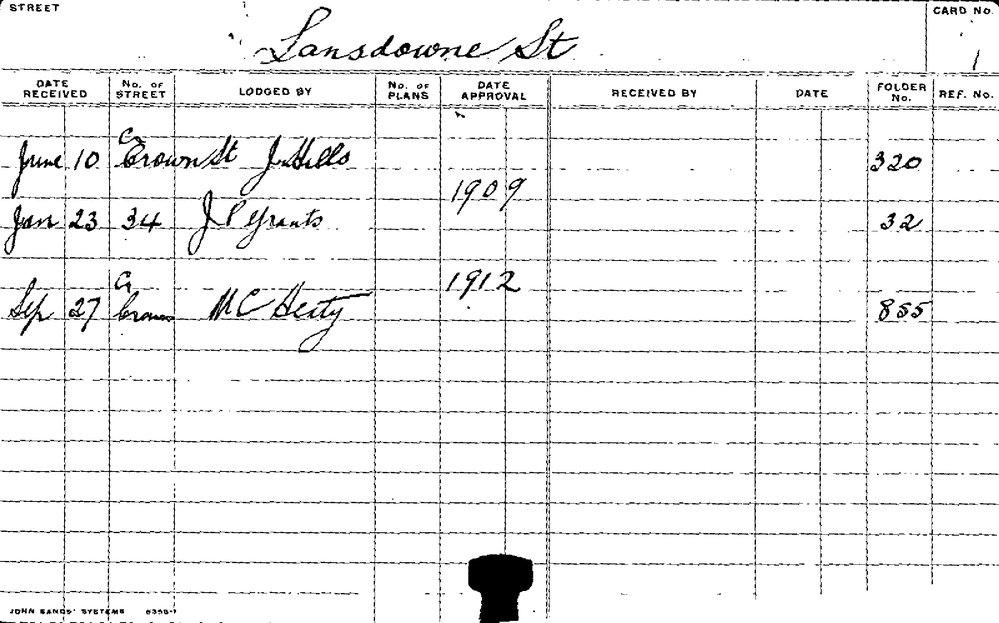 STREET
CARD NO.
Lansdowne St
1
DATE RECEIVED
No. OF STREET
LODGED BY
No. OF PLANS
DATE APPROVAL
RECEIVED BY
DATE
FOLDER No.
REF. No.
Cr
June 10 Crown St J Hills 320
1909
Jan 23 34 J P Grants 32
1912
Cr
Sep 27 Crown 855
JOHN SANDS' SYSTEMS